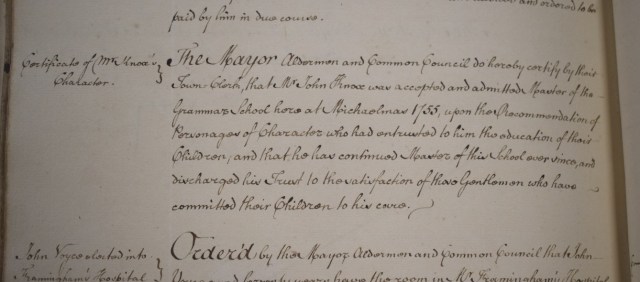 and ordered to be
paid by him in due course.
Certificate of Mr. Knox's
Character.
The Mayor Aldermen and Common Council do hereby certify by their
Town-Clerk, that Mr. John Knox was accepted and admitted Master of the
Grammar School here at Michaelmas 1755, upon the Recommendation of
Personages of Character who had entrusted to him the education of their
Children, and that he has continued Master of this School ever since, and
discharged his Trust to the satisfaction of those Gentlemen who have
committed their Children to his care.
John elected into
Framingham's Hospital
Order'd by the Mayor Aldermen and Common Council that John
have the room in Mr. Framingham's Hospital